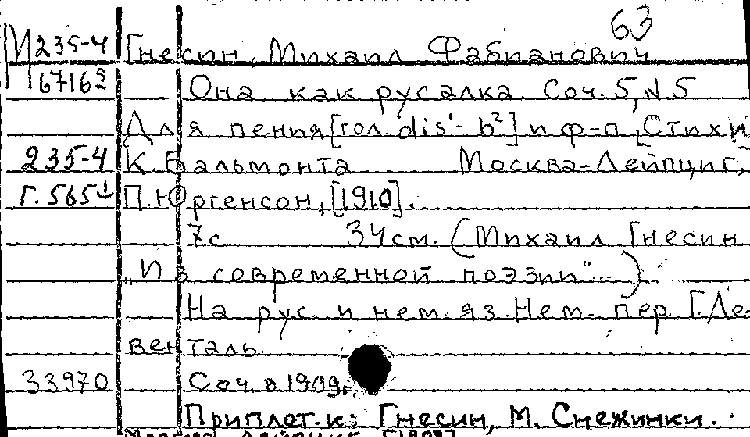 63
М235-4 Гнесин, Михаил Фабианович
Она как русалка. Соч. 5, N 5
Для пения [гол. dis'-b²] и ф-п. [Стихи
235-4 К. Бальмонта Москва-Лейпциг,
Г.565 П. Юргенсон, [1910].
7с 34см. (Михаил Гнесин
„Из современной поэзии"...)
На рус. и нем. яз. Нем. пер. Г. Ле-
венталь
33970 Соч. в 1909г.
Приплет. к: Гнесин, М. Снежинки.